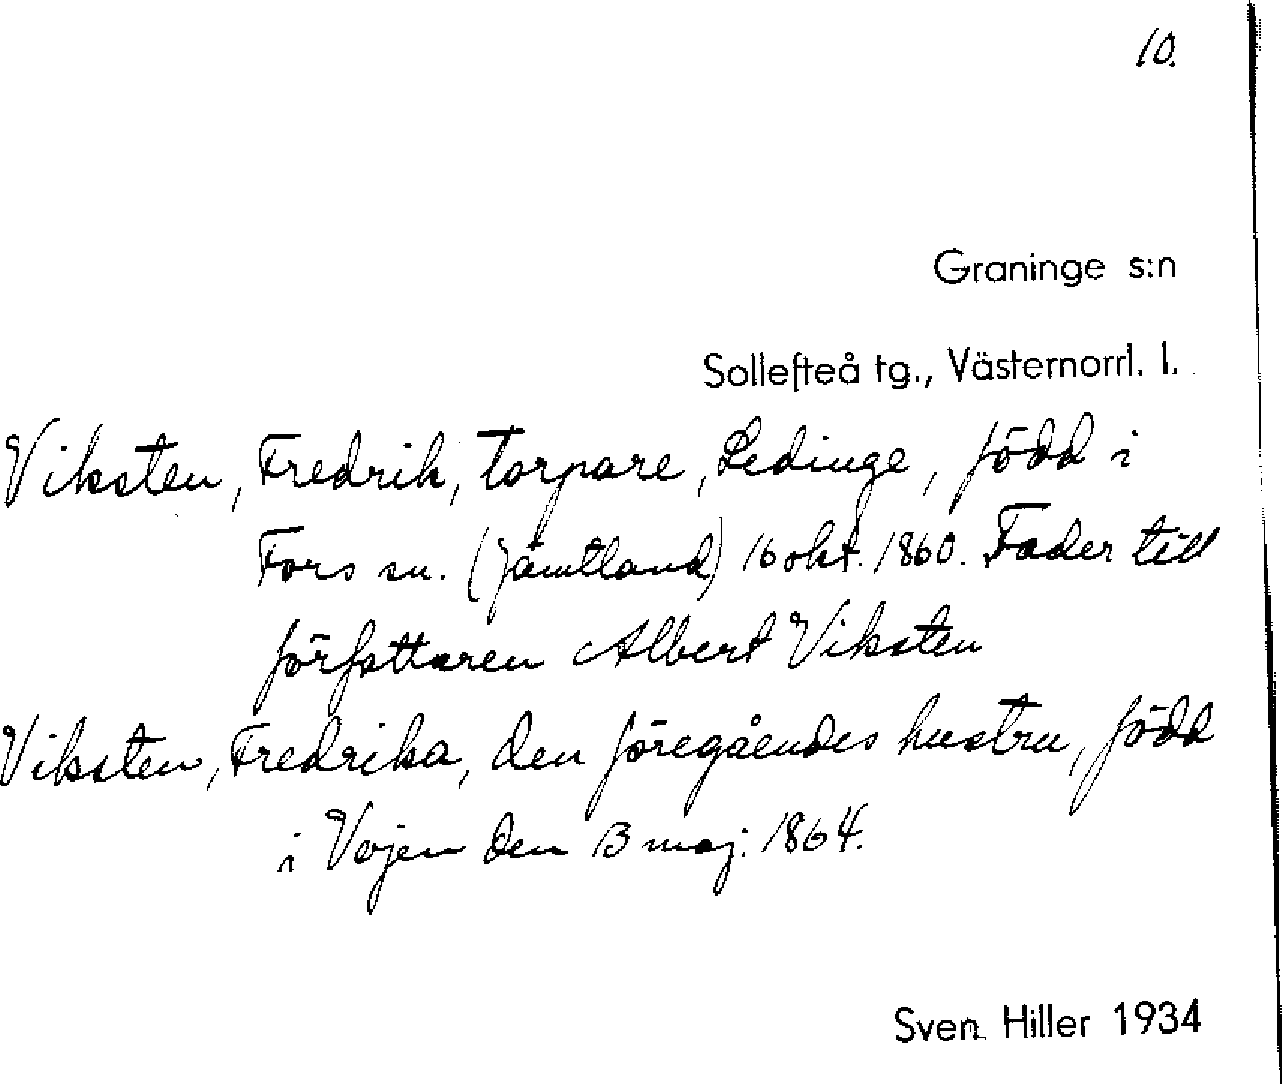 10.
Graninge s:n
Sollefteå tg., Västernorrl. l.
Viksten, Fredrik, torpare, Ledinge, född i
Fors sn. (Jämtland) 16 okt. 1860. Fader till
författaren Albert Viksten
Viksten, Fredrika, den föregåendes hustru, född
i Vojen den 13 maj. 1864.
Sven Hiller 1934